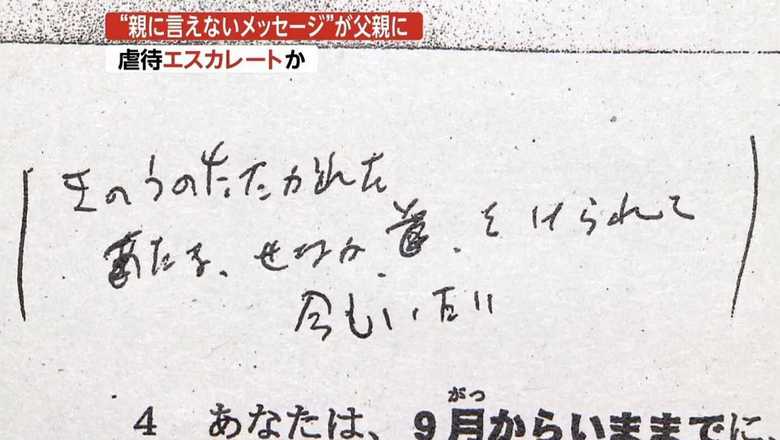 “親に言えないメッセージ”が父親に
虐待エスカレートか
きのうのたたかれた
あたま、せなか、首、をけられて
今もいたい
がつ
4 あなたは、9月からいままでに、